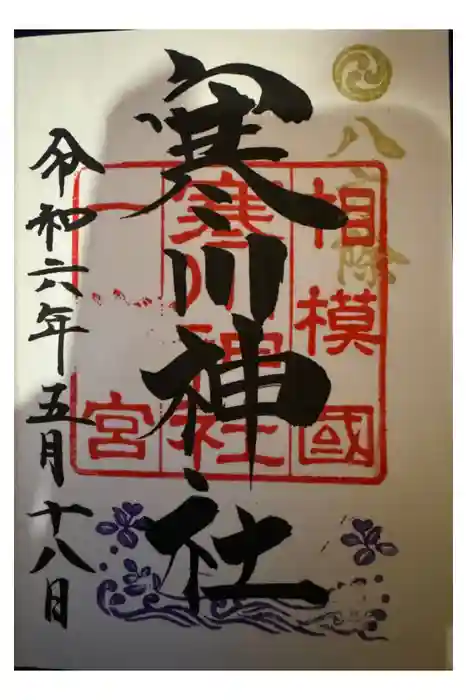 八方除
相模國
寒川神社
寒川神社
一宮
令和六年五月十八日